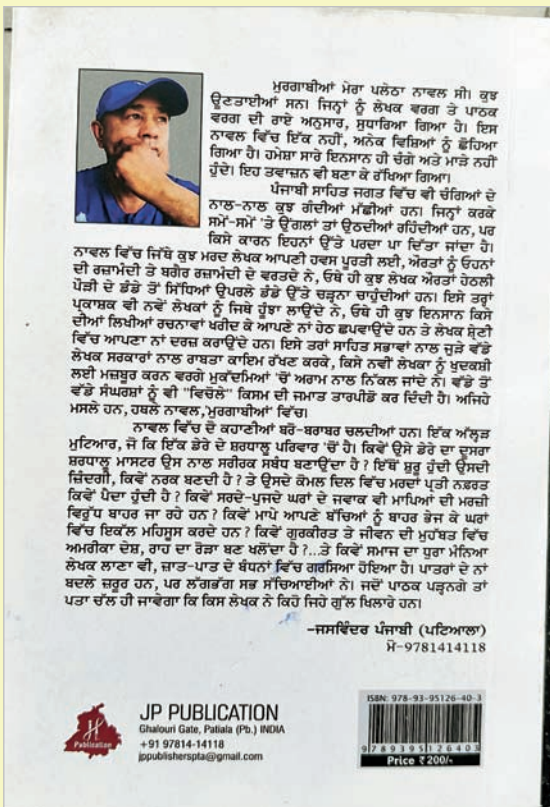 ਮੁਰਗਾਬੀਆਂ ਮੇਰਾ ਪਲੇਠਾ ਨਾਵਲ ਸੀ। ਕੁਝ
ਊਣਤਾਈਆਂ ਸਨ। ਜਿਨ੍ਹਾਂ ਨੂੰ ਲੇਖਕ ਵਰਗ ਤੇ ਪਾਠਕ
ਵਰਗ ਦੀ ਰਾਏ ਅਨੁਸਾਰ, ਸੁਧਾਰਿਆ ਗਿਆ ਹੈ। ਇਸ
ਨਾਵਲ ਵਿੱਚ ਇੱਕ ਨਹੀਂ, ਅਨੇਕ ਵਿਸ਼ਿਆਂ ਨੂੰ ਛੋਹਿਆ
ਗਿਆ ਹੈ। ਹਮੇਸ਼ਾ ਸਾਰੇ ਇਨਸਾਨ ਹੀ ਚੰਗੇ ਅਤੇ ਮਾੜੇ ਨਹੀਂ
ਹੁੰਦੇ। ਇਹ ਤਵਾਜ਼ਨ ਵੀ ਬਣਾ ਕੇ ਰੱਖਿਆ ਗਿਆ।
ਪੰਜਾਬੀ ਸਾਹਿਤ ਜਗਤ ਵਿੱਚ ਵੀ ਚੰਗਿਆਂ ਦੇ
ਨਾਲ-ਨਾਲ ਕੁਝ ਗੰਦੀਆਂ ਮੱਛੀਆਂ ਹਨ। ਜਿਨ੍ਹਾਂ ਕਰਕੇ
ਸਮੇਂ-ਸਮੇਂ 'ਤੇ ਉਂਗਲਾਂ ਤਾਂ ਉਠਦੀਆਂ ਰਹਿੰਦੀਆਂ ਹਨ, ਪਰ
ਕਿਸੇ ਕਾਰਨ ਇਹਨਾਂ ਉੱਤੇ ਪਰਦਾ ਪਾ ਦਿੱਤਾ ਜਾਂਦਾ ਹੈ।
ਨਾਵਲ ਵਿੱਚ ਜਿੱਥੇ ਕੁਝ ਮਰਦ ਲੇਖਕ ਆਪਣੀ ਹਵਸ ਪੂਰਤੀ ਲਈ, ਔਰਤਾਂ ਨੂੰ ਓਹਨਾਂ
ਦੀ ਰਜ਼ਾਮੰਦੀ ਤੇ ਬਗੈਰ ਰਜ਼ਾਮੰਦੀ ਦੇ ਵਰਤਦੇ ਨੇ, ਓਥੇ ਹੀ ਕੁਝ ਲੇਖਕ ਔਰਤਾਂ ਹੇਠਲੀ
ਪੌੜੀ ਦੇ ਡੰਡੇ ਤੋਂ ਸਿੱਧਿਆਂ ਉਪਰਲੇ ਡੰਡੇ ਉੱਤੇ ਚੜ੍ਹਨਾ ਚਾਹੁੰਦੀਆਂ ਹਨ। ਇਸੇ ਤਰ੍ਹਾਂ
ਪ੍ਰਕਾਸ਼ਕ ਵੀ ਨਵੇਂ ਲੇਖਕਾਂ ਨੂੰ ਜਿਥੇ ਹੂੰਝਾ ਲਾਉਂਦੇ ਨੇ, ਓਥੇ ਹੀ ਕੁਝ ਇਨਸਾਨ ਕਿਸੇ
ਦੀਆਂ ਲਿਖੀਆਂ ਰਚਨਾਵਾਂ ਖਰੀਦ ਕੇ ਆਪਣੇ ਨਾਂ ਹੇਠ ਛਪਵਾਉਂਦੇ ਹਨ ਤੇ ਲੇਖਕ ਸ਼੍ਰੇਣੀ
ਵਿੱਚ ਆਪਣਾ ਨਾਂ ਦਰਜ਼ ਕਰਾਉਂਦੇ ਹਨ। ਇਸੇ ਤਰਾਂ ਸਾਹਿਤ ਸਭਾਵਾਂ ਨਾਲ ਜੁੜੇ ਵੱਡੇ
ਲੇਖਕ ਸਰਕਾਰਾਂ ਨਾਲ ਰਾਬਤਾ ਕਾਇਮ ਰੱਖਣ ਕਰਕੇ, ਕਿਸੇ ਨਵੀਂ ਲੇਖਕਾ ਨੂੰ ਖੁਦਕਸ਼ੀ
ਲਈ ਮਜ਼ਬੂਰ ਕਰਨ ਵਰਗੇ ਮੁਕੱਦਮਿਆਂ 'ਚੋਂ ਅਰਾਮ ਨਾਲ ਨਿੱਕਲ ਜਾਂਦੇ ਨੇ। ਵੱਡੇ ਤੋਂ
ਵੱਡੇ ਸੰਘਰਸ਼ਾਂ ਨੂੰ ਵੀ "ਵਿਚੋਲੇ" ਕਿਸਮ ਦੀ ਜਮਾਤ ਤਾਰਪੀਡੋ ਕਰ ਦਿੰਦੀ ਹੈ। ਅਜਿਹੇ
ਮਸਲੇ ਹਨ, ਹਥਲੇ ਨਾਵਲ,'ਮੁਰਗਾਬੀਆਂ' ਵਿੱਚ।
ਨਾਵਲ ਵਿੱਚ ਦੋ ਕਹਾਣੀਆਂ ਬਰੋ-ਬਰਾਬਰ ਚਲਦੀਆਂ ਹਨ। ਇੱਕ ਅੱਲ੍ਹੜ
ਮੁਟਿਆਰ, ਜੋ ਕਿ ਇੱਕ ਡੇਰੇ ਦੇ ਸ਼ਰਧਾਲੂ ਪਰਿਵਾਰ 'ਚੋਂ ਹੈ। ਕਿਵੇਂ ਉਸੇ ਡੇਰੇ ਦਾ ਦੂਸਰਾ
ਸ਼ਰਧਾਲੂ ਮਾਸਟਰ ਉਸ ਨਾਲ ਸਰੀਰਕ ਸਬੰਧ ਬਣਾਉਂਦਾ ਹੈ? ਇੱਥੋਂ ਸ਼ੁਰੂ ਹੁੰਦੀ ਉਸਦੀ
ਜ਼ਿੰਦਗੀ, ਕਿਵੇਂ ਨਰਕ ਬਣਦੀ ਹੈ? ਤੇ ਉਸਦੇ ਕੋਮਲ ਦਿਲ ਵਿੱਚ ਮਰਦਾਂ ਪ੍ਰਤੀ ਨਫ਼ਰਤ
ਕਿਵੇਂ ਪੈਦਾ ਹੁੰਦੀ ਹੈ? ਕਿਵੇਂ ਸਰਦੇ-ਪੁਜਦੇ ਘਰਾਂ ਦੇ ਜਵਾਕ ਵੀ ਮਾਪਿਆਂ ਦੀ ਮਰਜ਼ੀ
ਵਿਰੁੱਧ ਬਾਹਰ ਜਾ ਰਹੇ ਹਨ? ਕਿਵੇਂ ਮਾਪੇ ਆਪਣੇ ਬੱਚਿਆਂ ਨੂੰ ਬਾਹਰ ਭੇਜ ਕੇ ਘਰਾਂ
ਵਿੱਚ ਇਕੱਲ ਮਹਿਸੂਸ ਕਰਦੇ ਹਨ? ਕਿਵੇਂ ਗੁਰਕੀਰਤ ਤੇ ਜੀਵਨ ਦੀ ਮੁਹੱਬਤ ਵਿੱਚ
ਅਮਰੀਕਾ ਦੇਸ਼, ਰਾਹ ਦਾ ਰੋੜਾ ਬਣ ਖਲੋਂਦਾ ਹੈ?...ਤੇ ਕਿਵੇਂ ਸਮਾਜ ਦਾ ਧੁਰਾ ਮੰਨਿਆ
ਲੇਖਕ ਲਾਣਾ ਵੀ, ਜ਼ਾਤ-ਪਾਤ ਦੇ ਬੰਧਨਾਂ ਵਿੱਚ ਗਰਸਿਆ ਹੋਇਆ ਹੈ। ਪਾਤਰਾਂ ਦੇ ਨਾਂ
ਬਦਲੇ ਜ਼ਰੂਰ ਹਨ, ਪਰ ਲੱਗਭੱਗ ਸਭ ਸੱਚਿਆਈਆਂ ਨੇ। ਜਦੋਂ ਪਾਠਕ ਪੜ੍ਹਨਗੇ ਤਾਂ
ਪਤਾ ਚੱਲ ਹੀ ਜਾਵੇਗਾ ਕਿ ਕਿਸ ਲੇਖਕ ਨੇ ਕਿਹੋ ਜਿਹੇ ਗੁੱਲ ਖਿਲਾਰੇ ਹਨ।
-ਜਸਵਿੰਦਰ ਪੰਜਾਬੀ (ਪਟਿਆਲਾ)
ਮੋ-9781414118
JP PUBLICATION
Ghalouri Gate, Patiala (Pb.) INDIA
+91 97814-14118
jppublisherspta@gmail.com
Publication
ISBN: 978-93-95126-40-3
9 789395 126403
Price ₹ 200/-